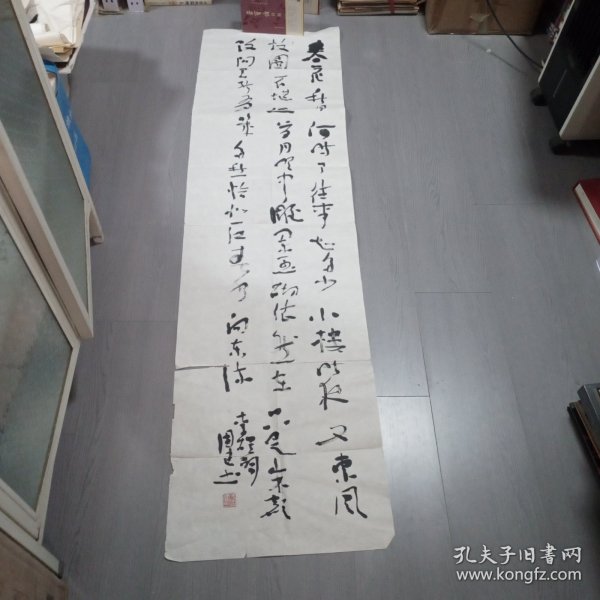 春花秋月何时了往事知多少小樓昨夜又東風
故國不堪回首月明中雕闌玉砌依然在只是朱颜
改问君能有几多愁恰似一江春水向东流
李煜詞
孔夫子旧书网
www.kongfz.com